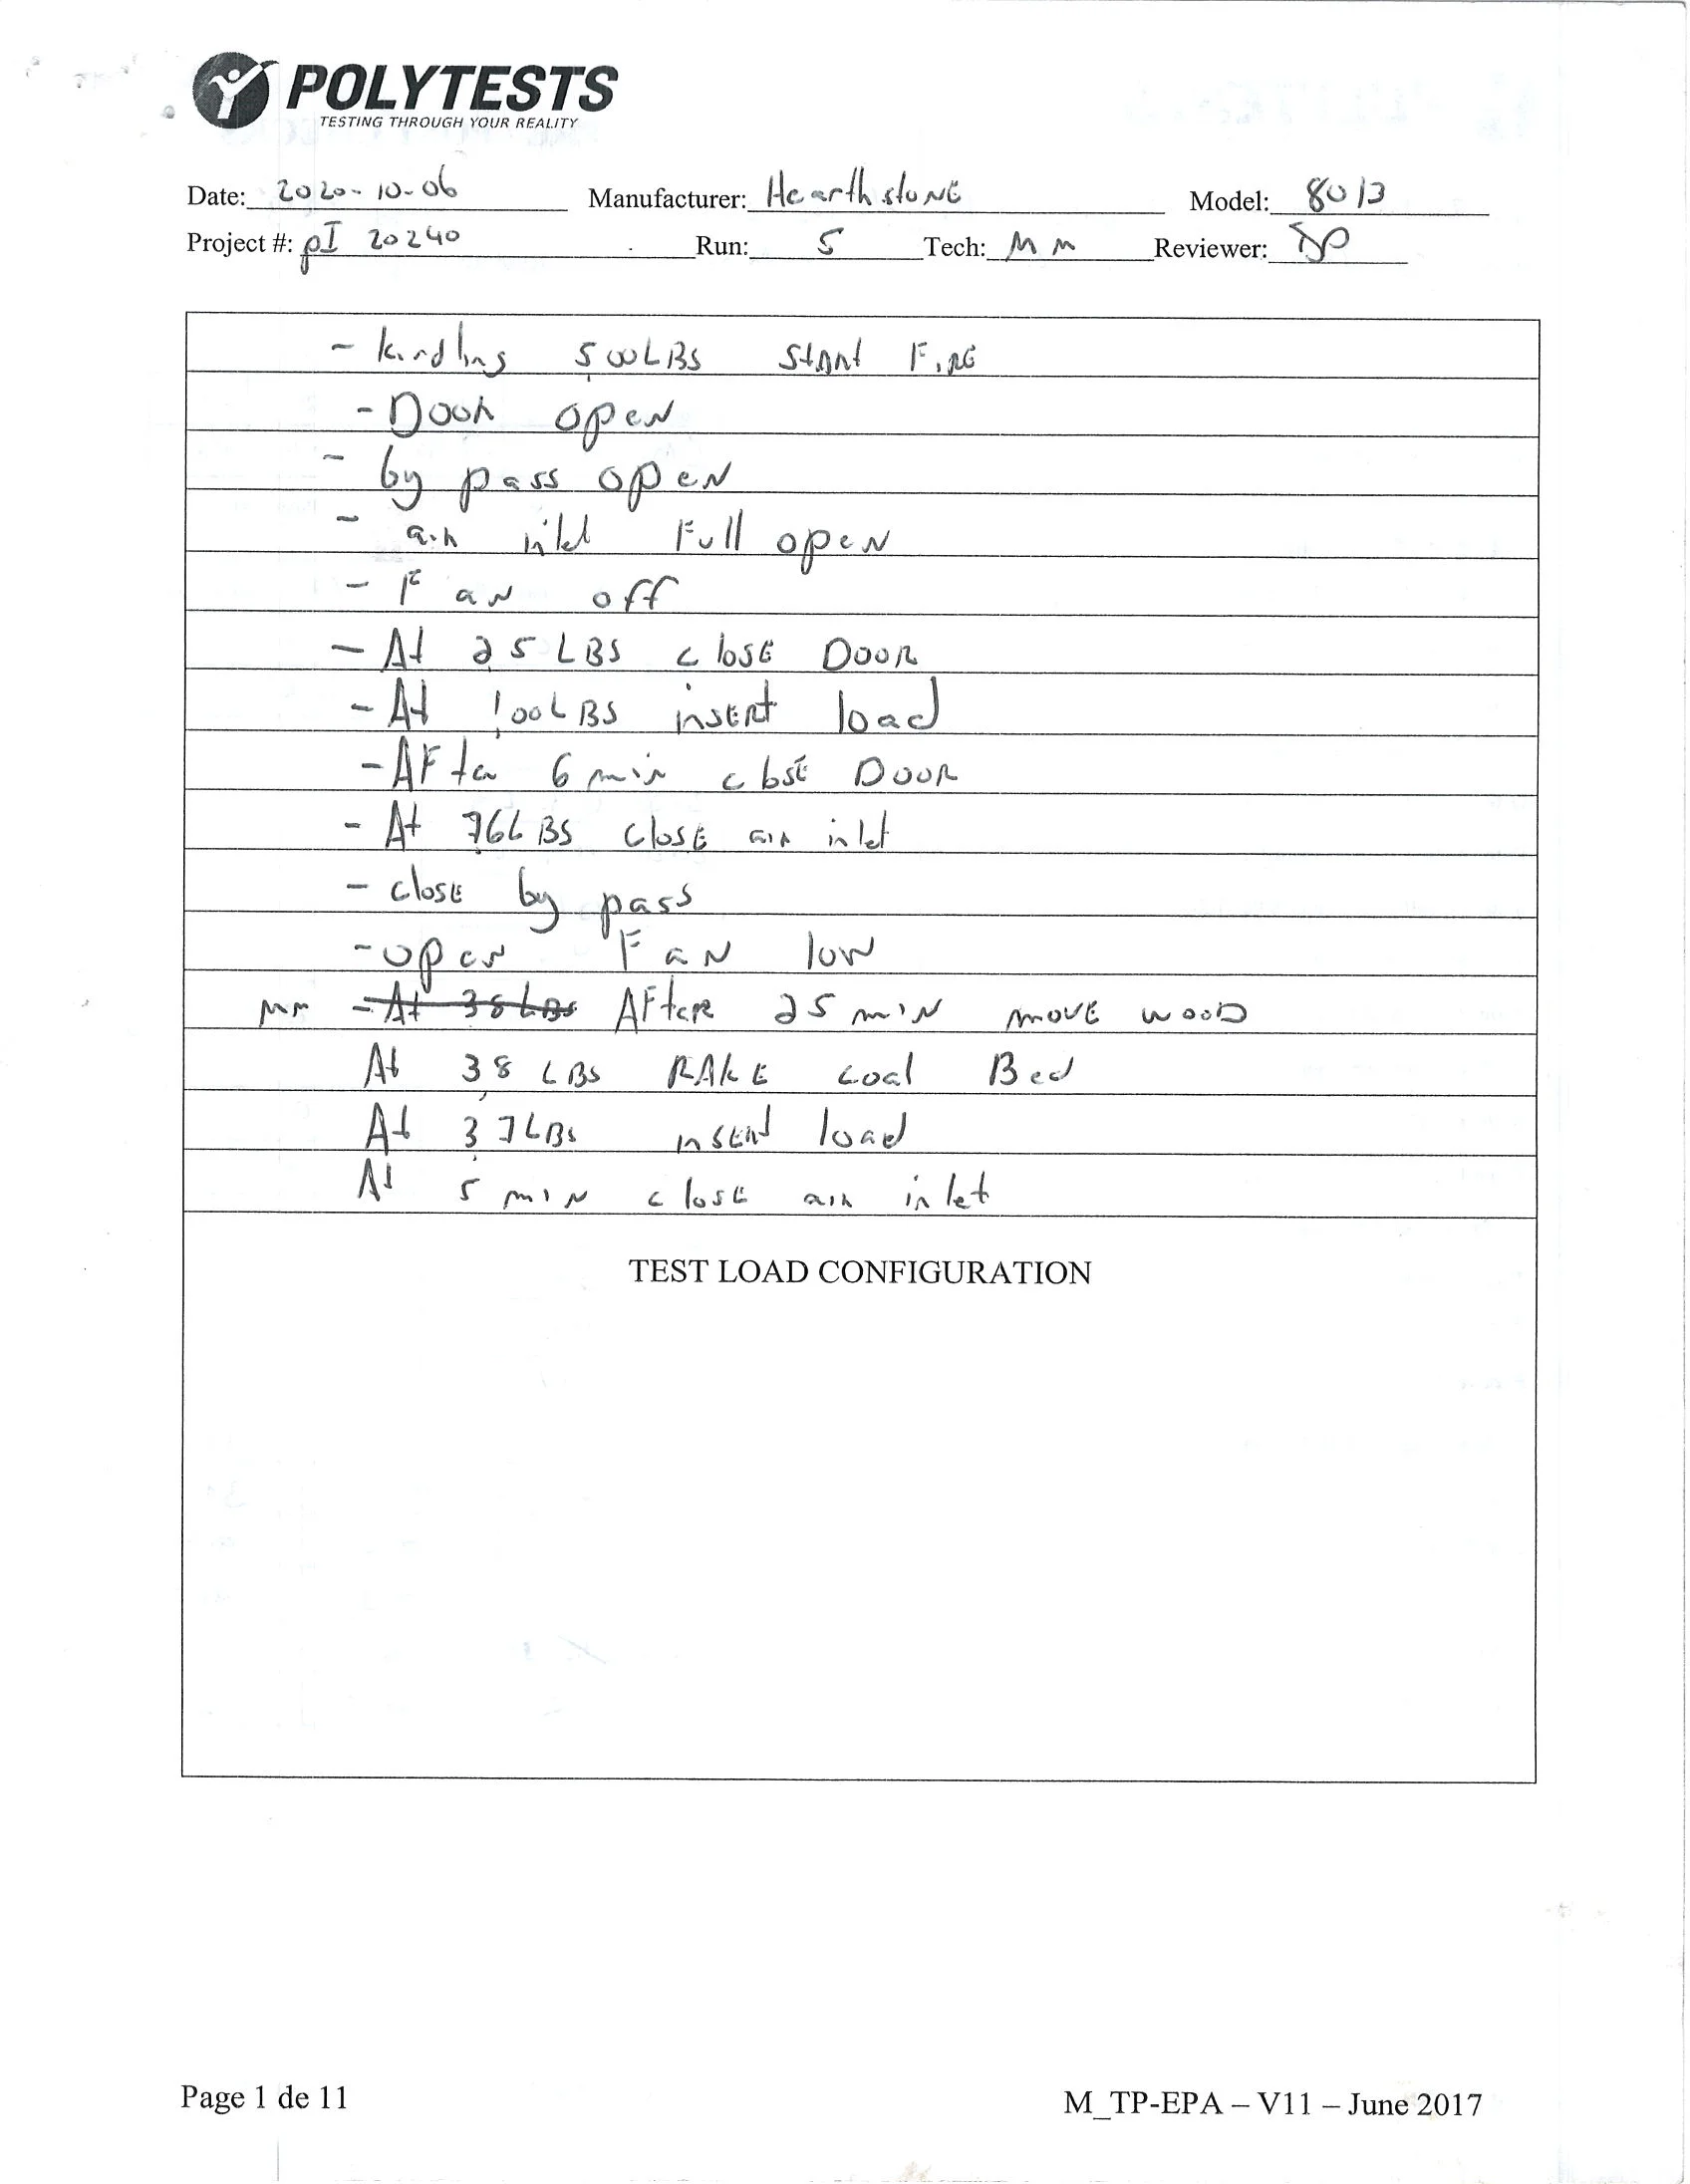 POLYTESTS
TESTING THROUGH YOUR REALITY
Date: 2020-10-06 Manufacturer: HearthstoNE Model: 8013
Project #: pI 20240 Run: 5 Tech: MM Reviewer: JP
- kindling 5,00LBS StARt FiRE
- DooR open
- by pass open
- aiR inlet Full open
- FaN off
- At 25 LBS closE DooR
- At 1,00LBS insERt load
- AFteR 6 min closE DooR
- At 7,6LBS ClosE aiR inlet
- closE by pass
- open FaN low
MM - At 38 LBS AFteR 25 miN movE wooD
At 3,8 LBS RAkE coal Bed
At 3,7LBS insERt load
At 5 miN closE aiR inlet
TEST LOAD CONFIGURATION
Page 1 de 11 M_TP-EPA – V11 – June 2017